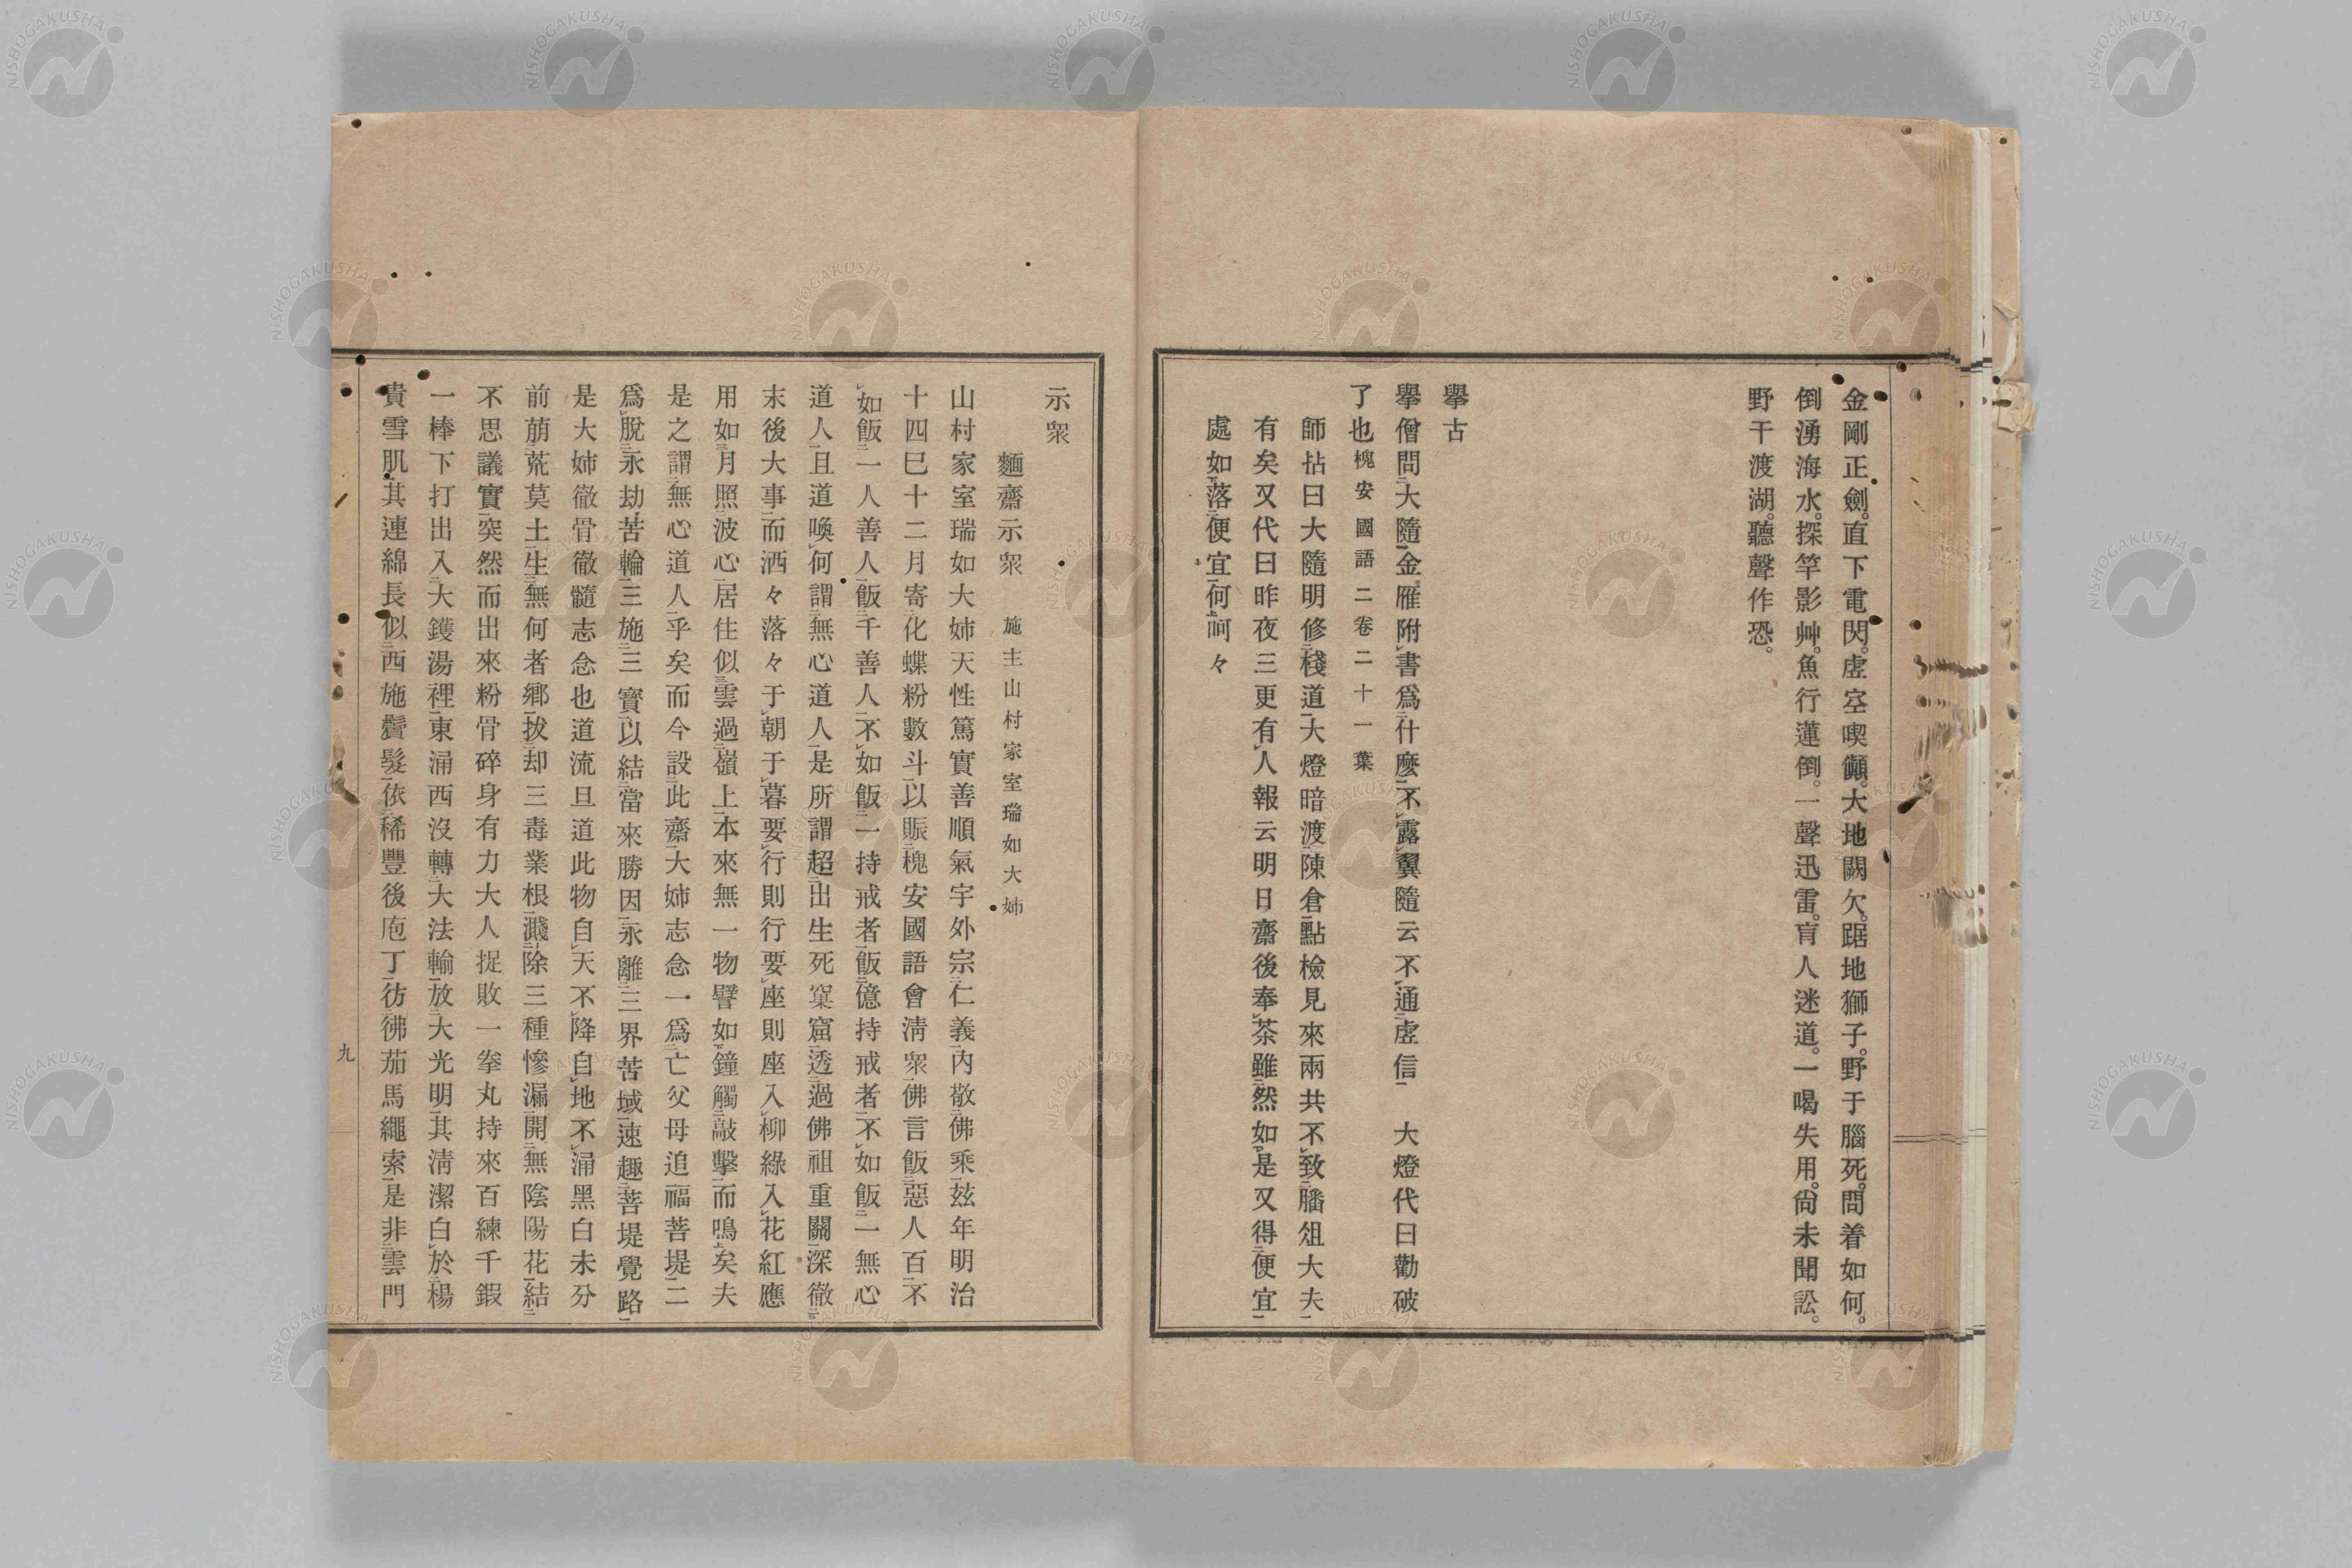 金剛正劍。直下電閃。虛空喫顚。大地闕欠。踞地獅子。野于腦死。問着如何。
倒湧海水。探竿影艸。魚行蓮倒。一聲迅雷。盲人迷道。一喝失用。尙未聞訟。
野干渡湖。聽聲作恐。
擧古
擧僧問大隨金雁附書爲什麼不露翼隨云不通虛信 大燈代曰勸破
了也槐安國語二卷二十一葉
師拈曰大隨明修棧道大燈暗渡陳倉點檢見來兩共不致膰俎大夫
有矣又代曰昨夜三更有人報云明日齋後奉茶雖然如是又得便宜
處如落便宜何呵々
示衆
麵齋示衆 施主山村家室瑞如大姉
山村家室瑞如大姉天性篤實善順氣宇外宗仁義內敬佛乘玆年明治
十四巳十二月寄化蝶粉數斗以賑槐安國語會淸衆佛言飯惡人百不
如飯一人善人飯千善人不如飯一持戒者飯億持戒者不如飯一無心
道人且道喚何謂無心道人是所謂超出生死窠窟透過佛祖重關深徹
末後大事而洒々落々于朝于暮要行則行要座則座入柳綠入花紅應
用如月照波心居住似雲過嶺上本來無一物譬如鐘觸敲擊而鳴矣夫
是之謂無心道人乎矣而今設此齋大姉志念一爲亡父母追福菩堤二
爲脫永劫苦輪三施三寶以結當來勝因永離三界苦域速趣菩堤覺路
是大姉徹骨徹髓志念也道流且道此物自天不降自地不涌黑白未分
前萠荒莫土生無何者鄕拔却三毒業根濺除三種慘漏開無陰陽花結
不思議實突然而出來粉骨碎身有力大人捉敗一拳丸持來百練千鍜
一棒下打出入大鑊湯裡東涌西沒轉大法輸放大光明其淸潔白於楊
貴雪肌其連綿長似西施鬢髮依稀豐後庖丁彷彿茄馬繩索是非雲門
九
NISHOGAKUSHA